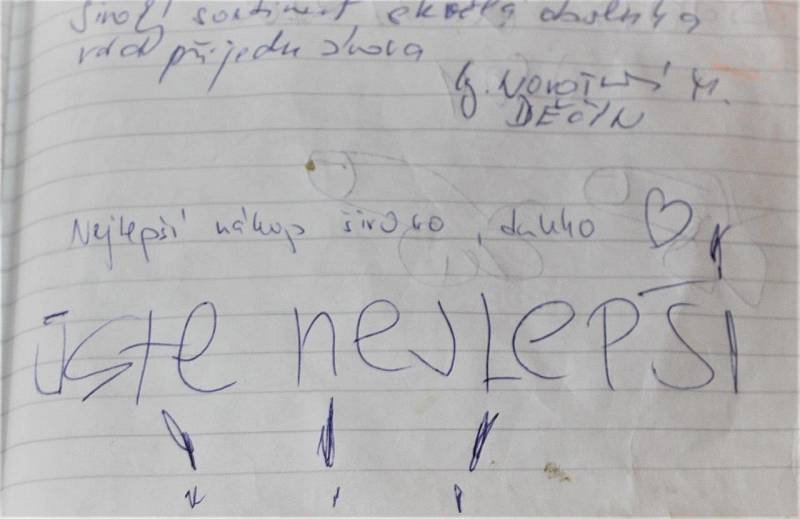 široký sortiment skvělá obsluha
rád přijedu znova
Novotný M.
DĚČÍN
Nejlepší nákup široko, daleko ♡
jste nejlepší
!!!